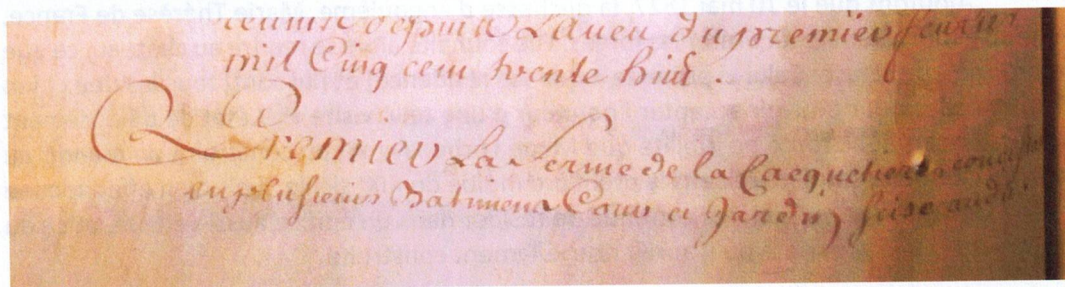 reunis depuis L'aveu du premier feurier
mil Cinq cent trente huit.
Premier La Ferme de la Cacquetiere, consist
en plusieurs Batimens Cour et Jardin, scise audit